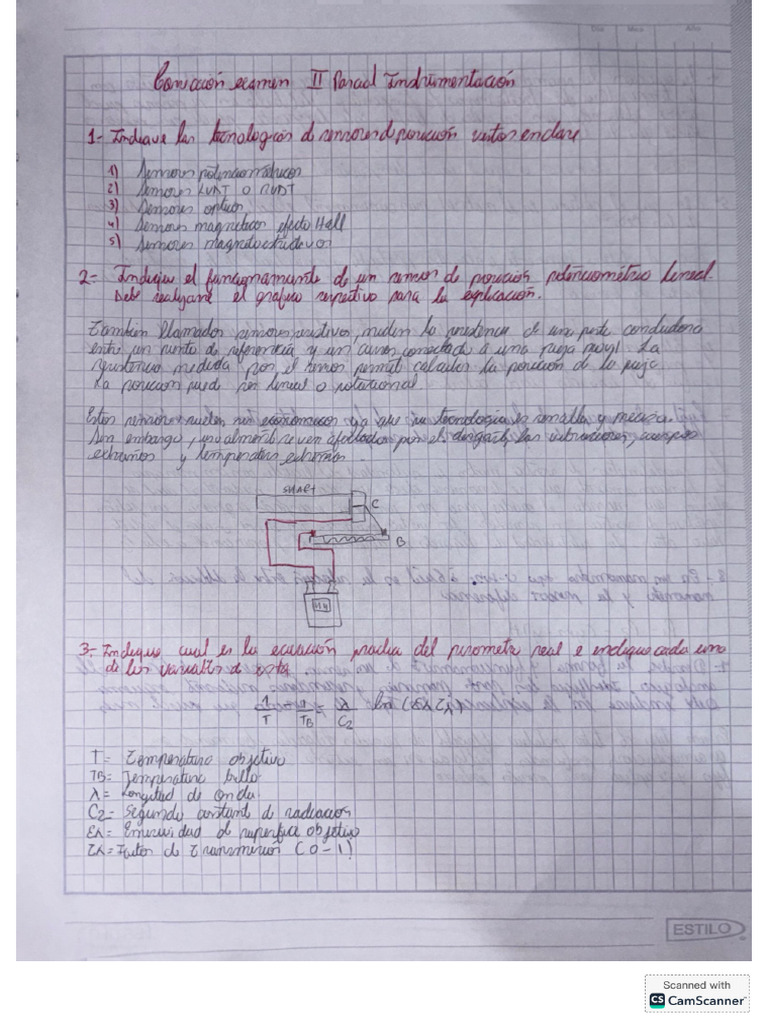 Dia Mes Año
Corrección examen II Parcial Instrumentación
1- Indique las tecnologias d sensores d posición vistos en clase
1) Sensores potenciométricos
2) Sensores LVDT o RVDT
3) Sensores opticos
4) Sensores magneticos efecto Hall
5) Sensores magnetoestrictivos
2- Indique el funcionamiento de un sensor de posición potenciométrico lineal.
Debe realizarse el grafico respectivo para la explicación.
También llamados sensores resistivos, miden la de un poste conductora
entre un punto de referencia y un cursor conectado a una pieza movil. La
resistencia medida por el sensor permite calcular la posicion de la pieza.
La posicion puede ser lineal o rotacional
Estos sensores suelen ser económicos ya que su tecnología es sencilla y precisa.
Sin embargo, usualmente se ven afectados por el desgaste, las vibraciones, cuerpos
extraños y temperaturas extremas
SHAFT
C
B
3- Indique cual es la ecuación practica del pirometro real e indique cada una
de las variables d esta
1/T - 1/TB = λ/C2 ln (ελ τλ)
T= Temperatura objetivo
TB= Temperatura brillo
λ= Longitud de Onda
C2= Segunda constante d radiacion
ελ= Emisividad d superficie objetivo
τλ= Factor de Transmision (0-1)
ESTILO
Scanned with
CS CamScanner